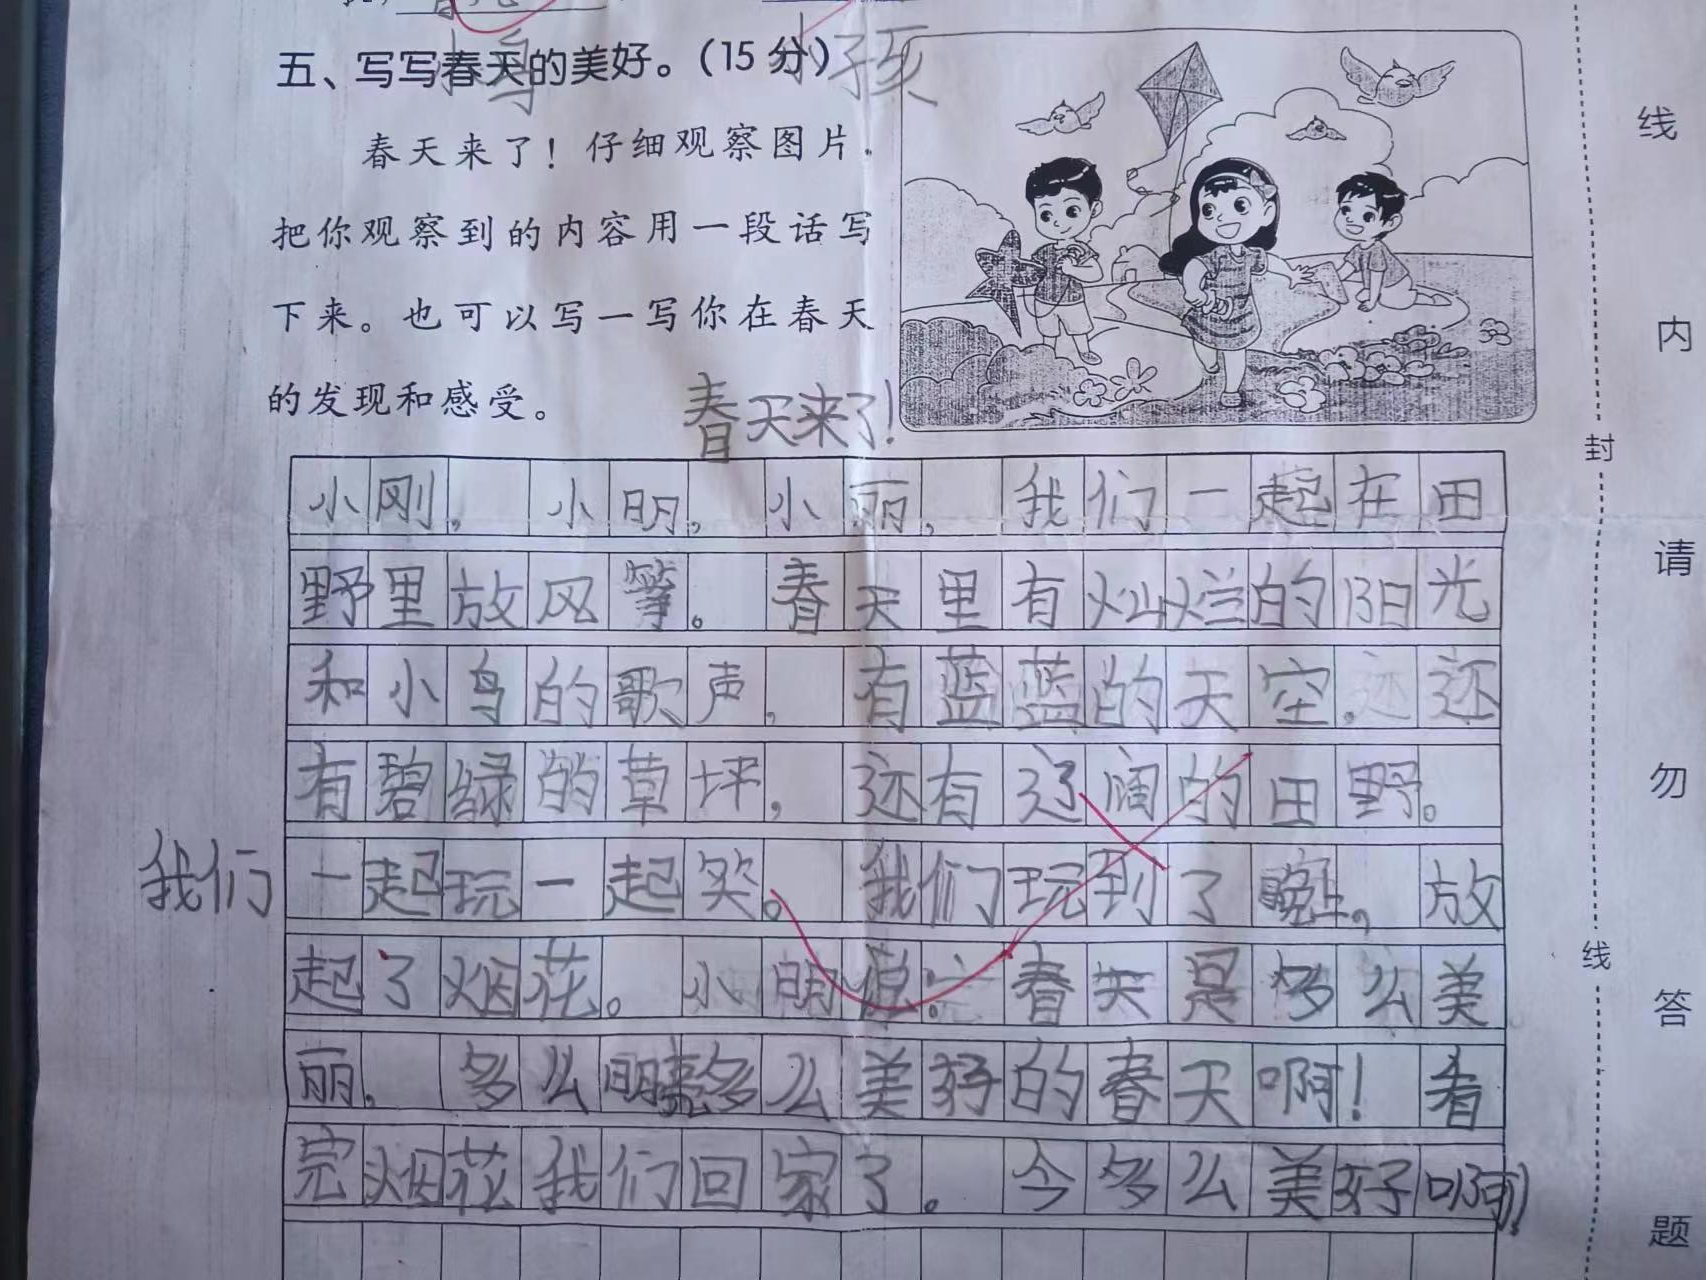 五、写写春天的美好。（15分）
小孩
春天来了！仔细观察图片，
把你观察到的内容用一段话写
下来。也可以写一写你在春天
的发现和感受。
春天来了！
小刚，小明，小丽，我们一起在田
野里放风筝。春天里有灿烂的阳光
和小鸟的歌声，有蓝蓝的天空，还
有碧绿的草坪，还有辽阔的田野。
我们一起玩一起笑。我们玩到了晚上，放
起了烟花。小明说：春天是多么美
丽，多么明亮多么美好的春天啊！看
完烟花我们回家了。今多么美好啊！
线
内
请
勿
答
题
封
线